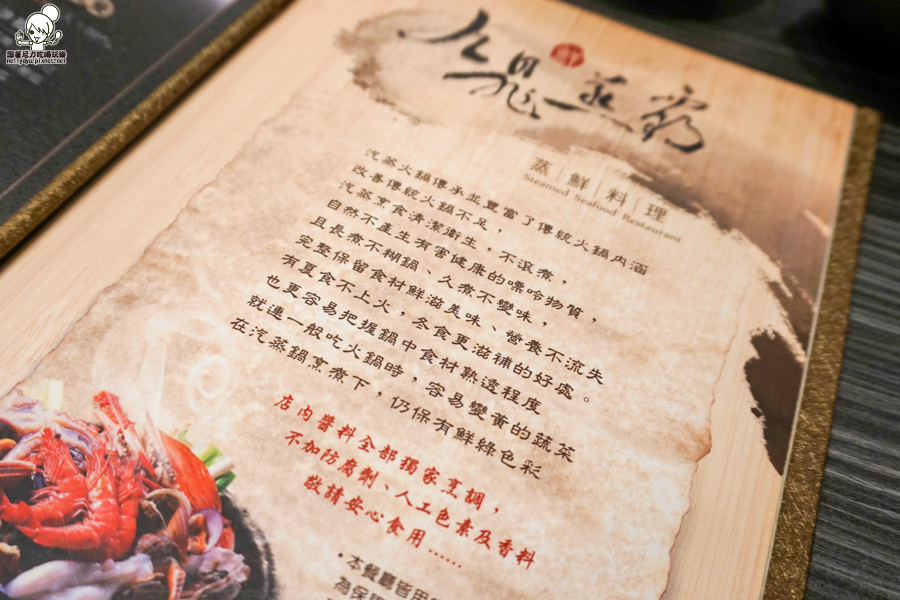 跟著尼力吃喝玩樂
nellydyu.pixnet.net
蒸鍋
蒸│鮮│料│理
Steamed Seafood Restaurant
汽蒸火鍋傳承並豐富了傳統火鍋內涵
改善傳統火鍋不足，
汽蒸烹食清潔衛生，不滾煮，
自然不產生有害健康的嘌呤物質，
且長煮不糊鍋、久煮不變味，
完整保留食材鮮滋美味、營養不流失
有夏食不上火，冬食更滋補的好處。
也更容易把握鍋中食材熟透程度
就連一般吃火鍋時，容易變黃的蔬菜
在汽蒸鍋烹煮下，仍保有鮮綠色彩
店內醬料全部獨家烹調，
不加防腐劑、人工色素及香料
敬請安心食用......
•本餐廳皆用
為保障